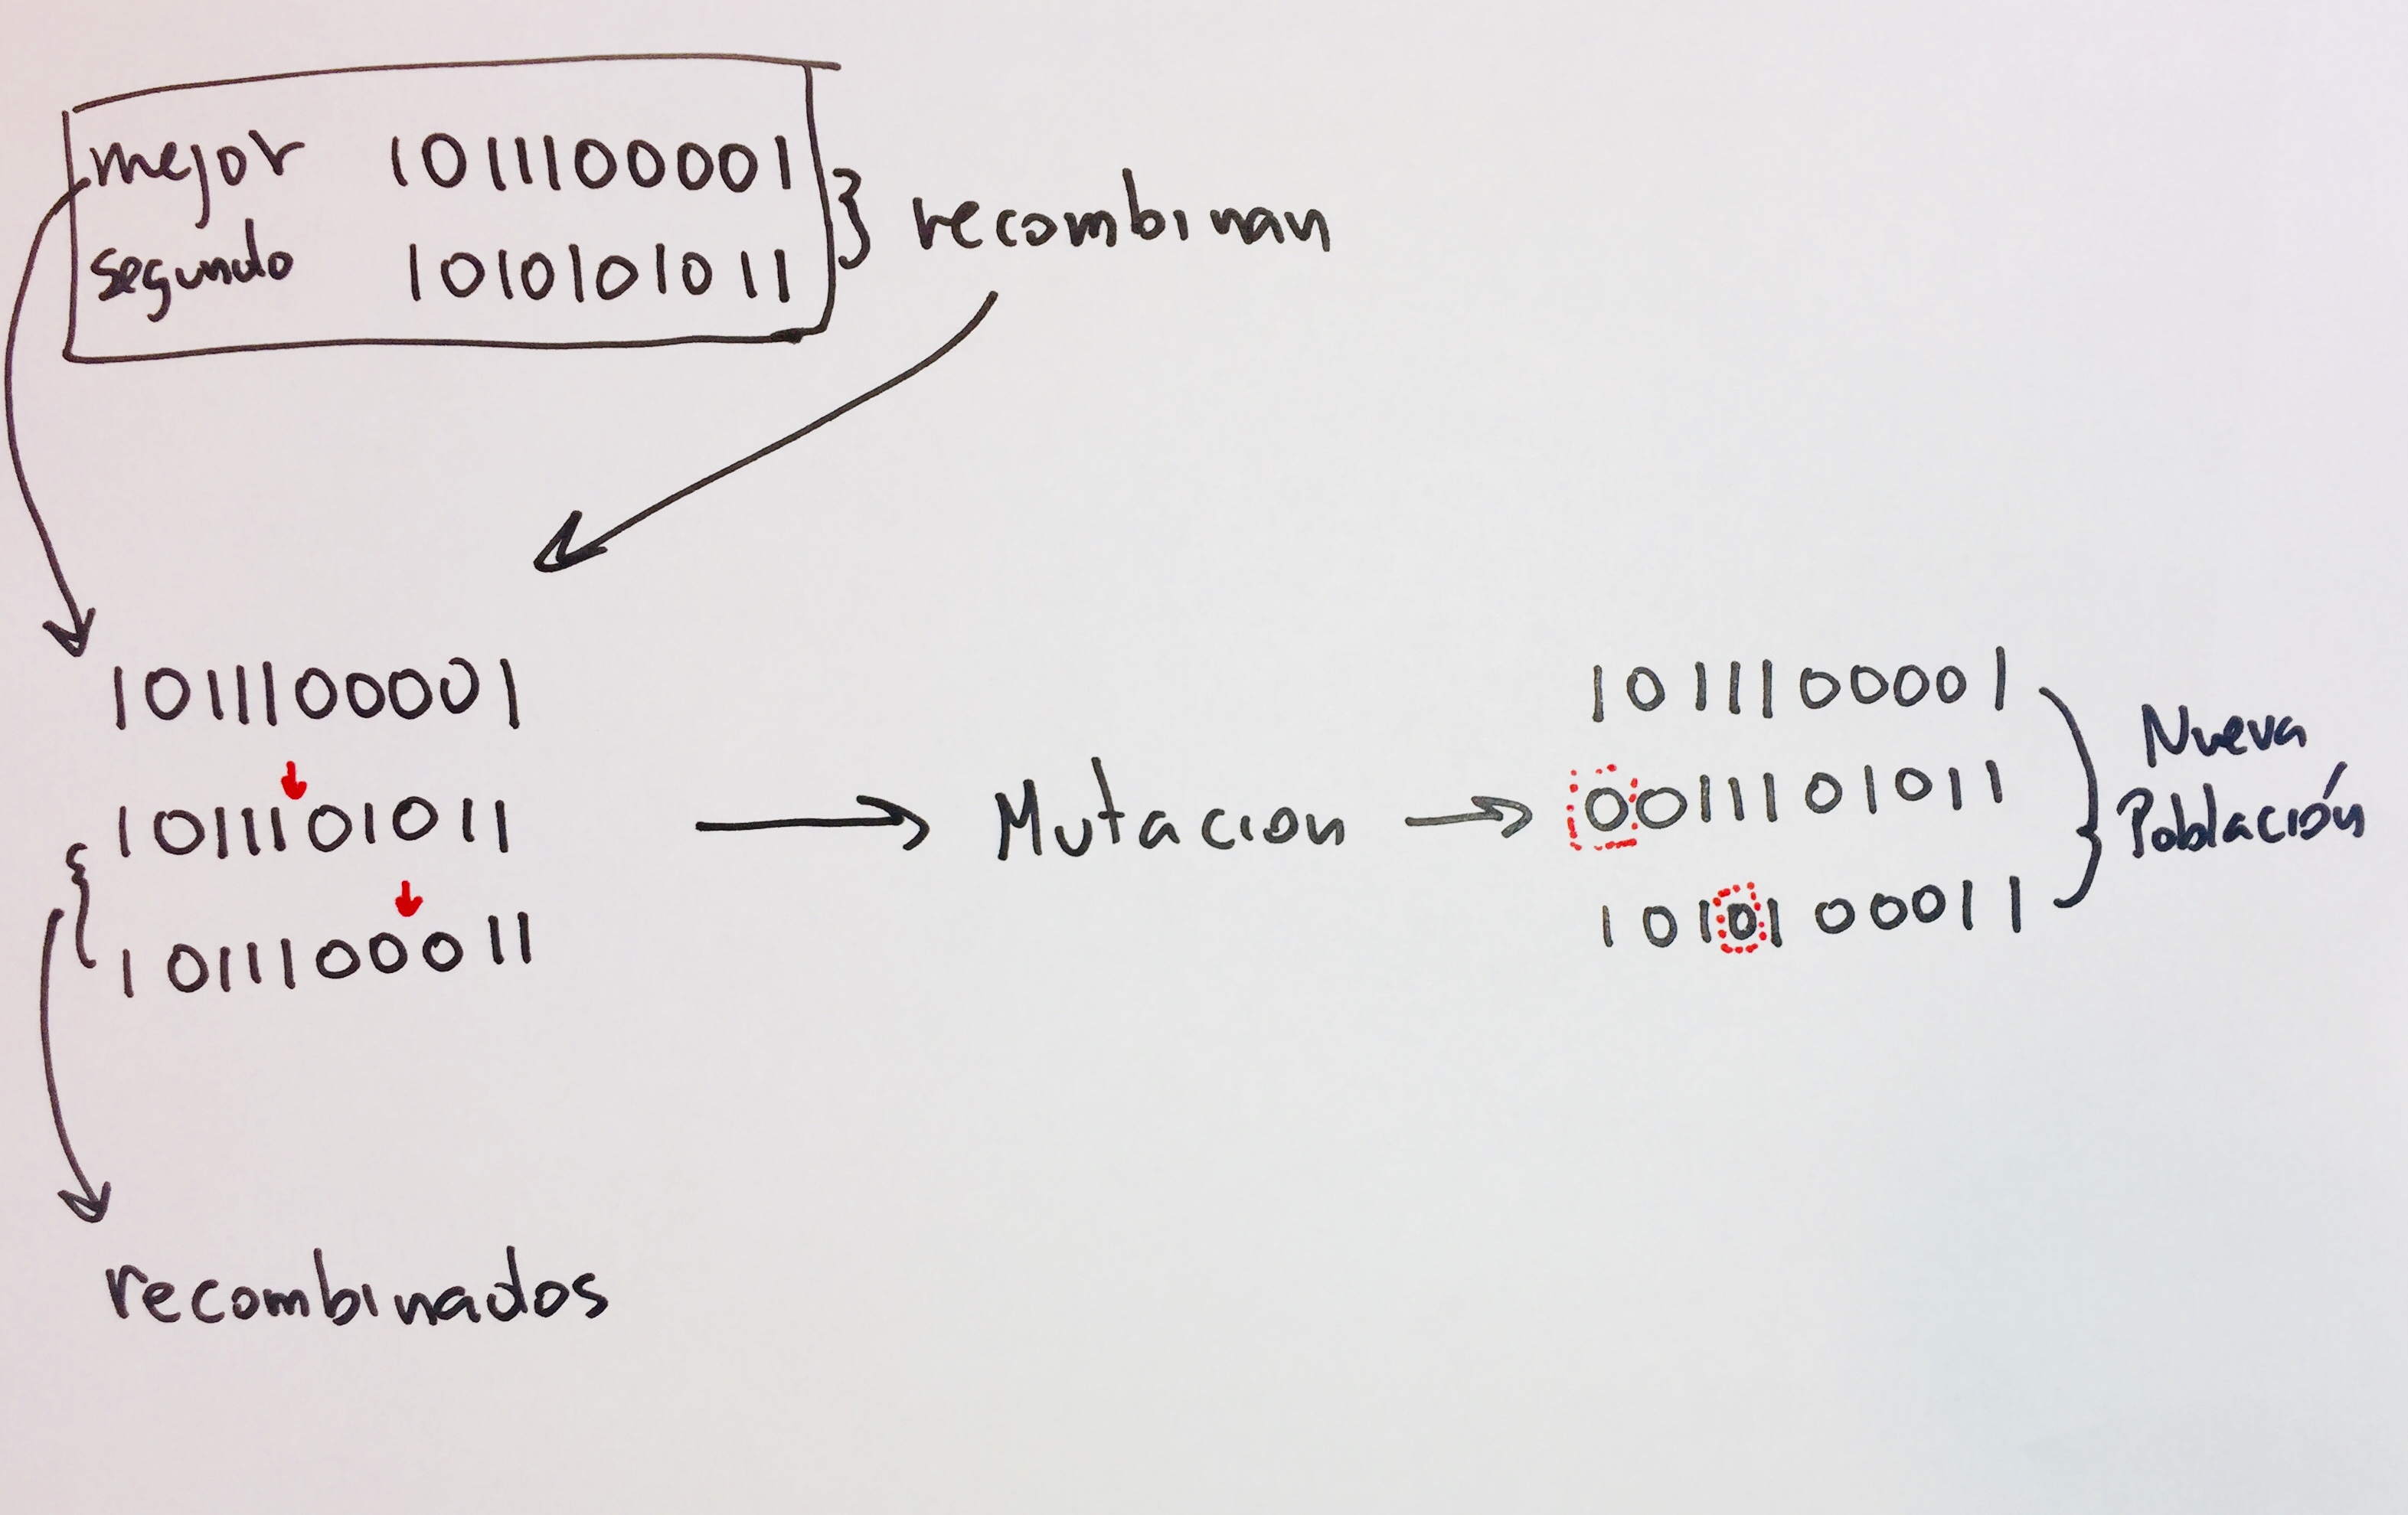 mejor 1011100001
segundo 1010101011
recombinan
1011100001
1011101011
1011100011
recombinados
Mutacion
1011100001
0011101011
1010100011
Nueva
Población